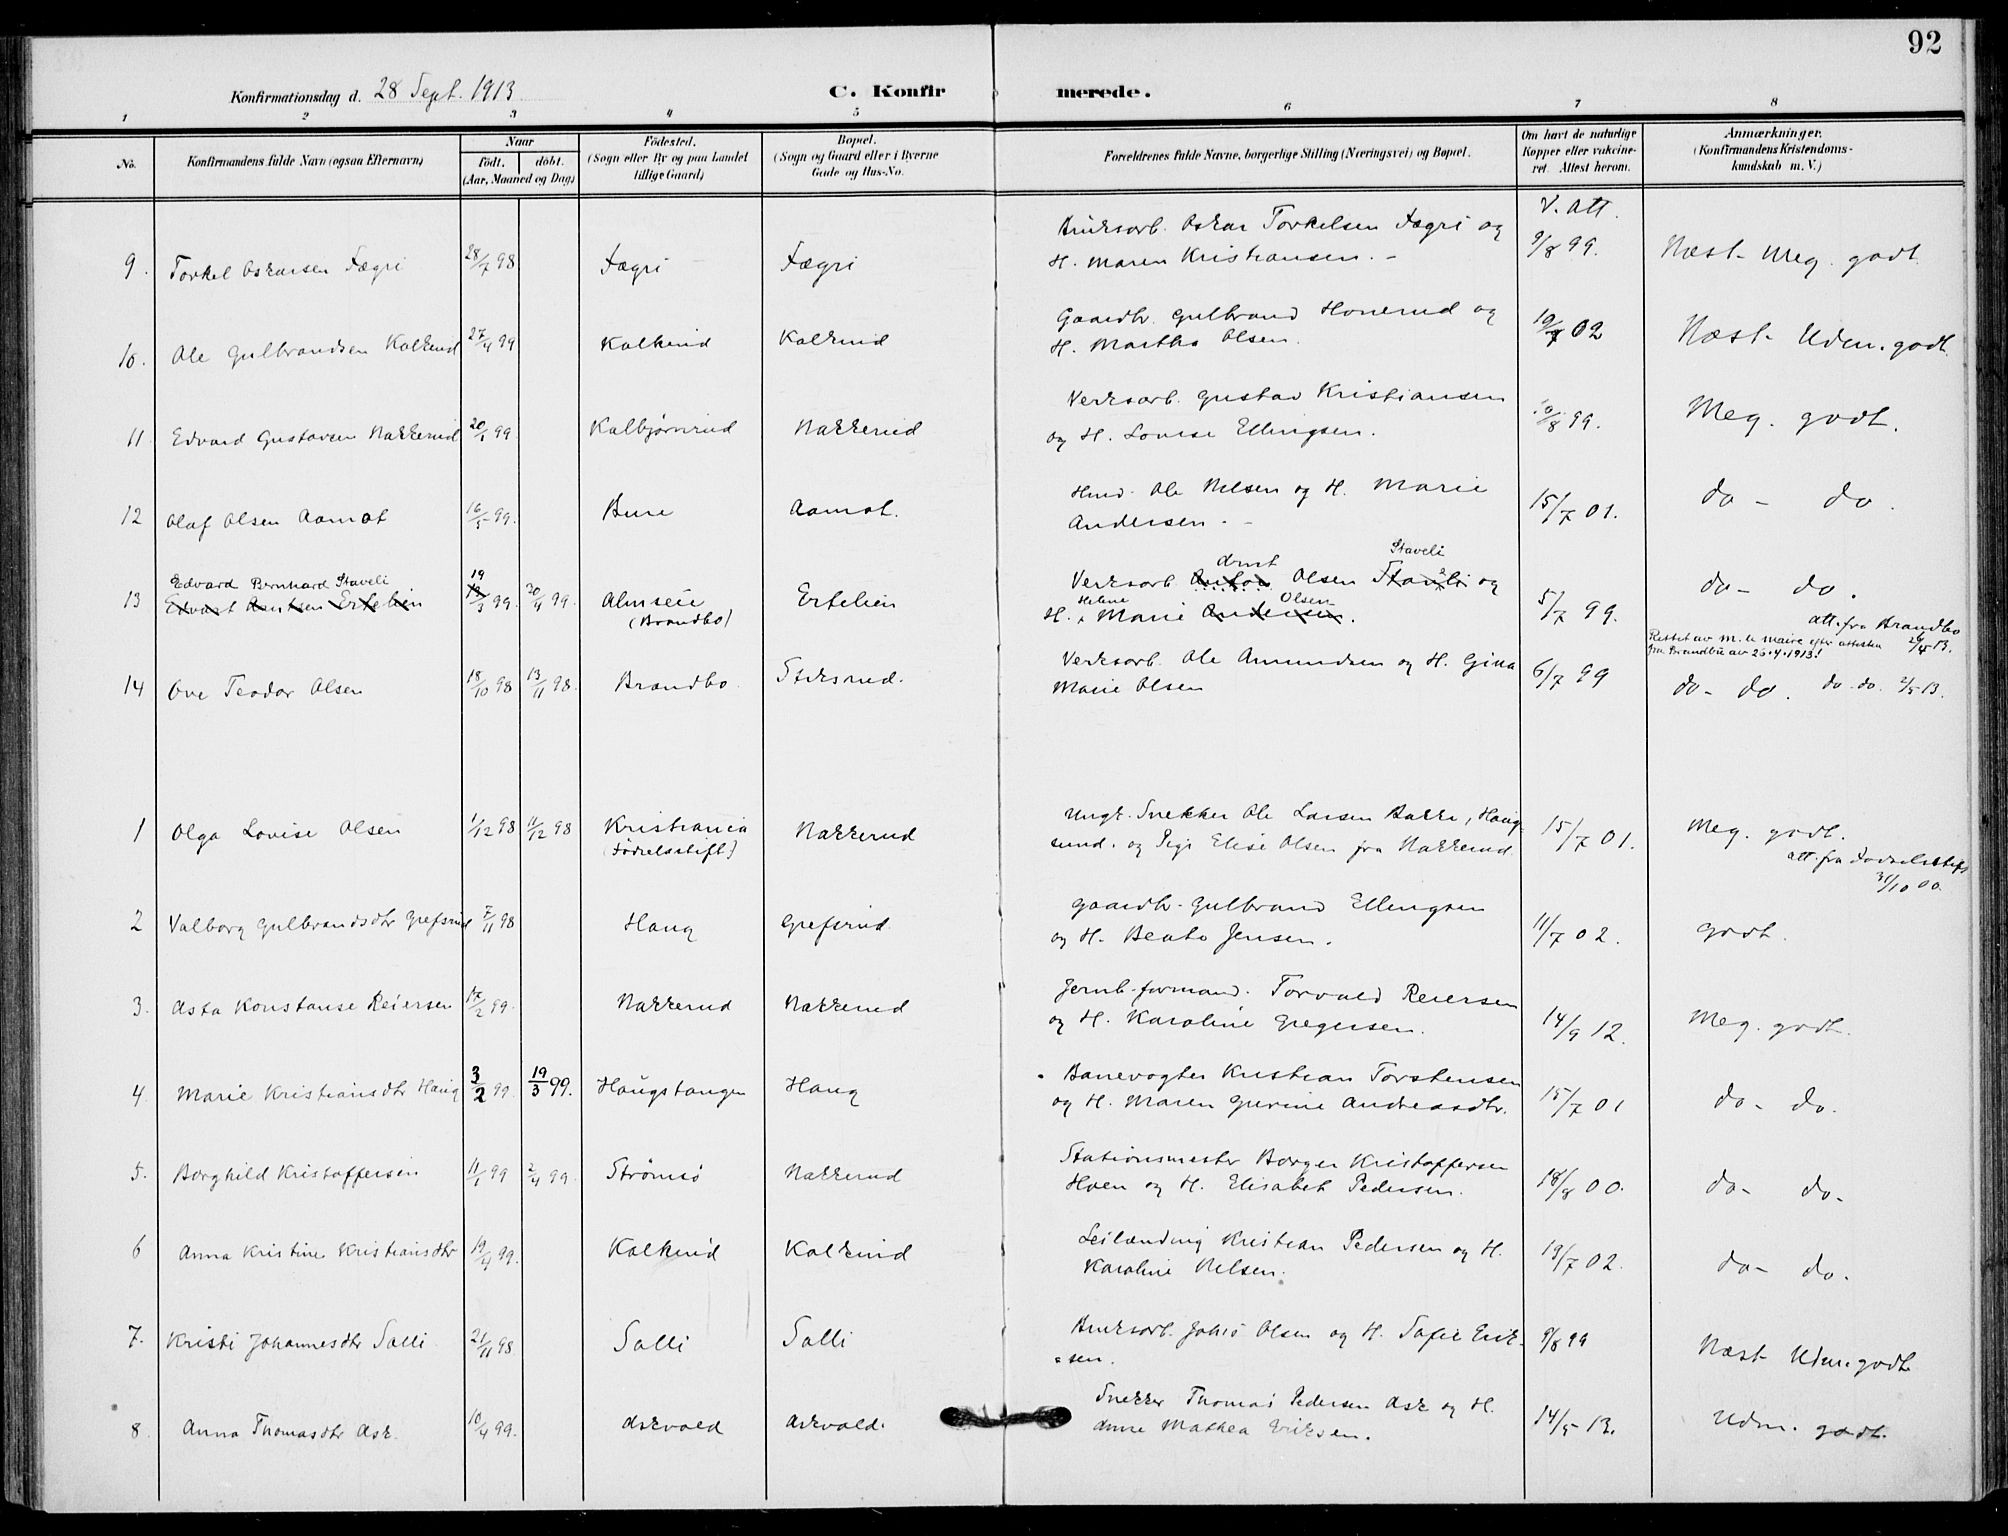 92
Konfirmationsdag d. 28 Sept. 1913
C. Konfir merede.
1 2 3 4 5 6 7 8
No.
Konfirmandens fulde Navn (ogsaa Efternavn)
Naar
født. døbt.
(Aar, Maaned og Dag)
Fødested.
(Sogn eller By og paa Landet
tillige Gaard)
Bopæl.
(Sogn og Gaard eller i Byerne
Gade og Hus-No.
Forældrenes fulde Navne, borgerlige Stilling (Næringsvei) og Bopæl.
Om havt de naturlige
Kopper eller vakcine-
ret. Attest herom.
Anmærkninger.
(Konfirmandens Kristendoms-
kundskab m. V.)
V. Att.
Bruksarb. Oskar Torkelsen Fægri og
9. Torkel Oskarsen Fægri 28/7 98 Fægri Fægri H. Maren Kristiansen. - 9/8 99. Næst- Meg. godt
Gaardbr. Gulbrand Honerud og
10. Ole Gulbrandsen Kalkrud 27/4 99 Kalkrud Kalkrud H. Martha Olsen. 02 Næst- Udm. godt.
Verksarb. Gustav Kristiansen
11. Edvard Gustavsen Nakkerud 20/1 99. Kalbjørnrud Nakkerud og H. Lovise Ellingsen. 10/8 99. Meg. godt.
Hmd. Ole Nelsen og H. Marie
12 Olaf Olsen Aamot 99. Bure Aamot. Andersen. - 15/7 01. do - do.
Edvard Bernhard Staveli 19 Arnt Staveli
13 Edvart Arntsen Ertelien 3 99. 30/4 99. Almseie Ertelien Verksarb. Anton Olsen Stavli og 5/7 99. do- do.
(Brandbo) H. Helene Marie Andersen Olsen. att. fra Brandbo
Rettet av M. le Maire efter attester
fra Brandbu av 26.4.1913!
Verksarb. Ole Amundsen og H. Gina
14 Ove Teodor Olsen 18/10 98 13/11 98. Brandbo. Stiksrud. Marie Olsen 6/7 99 do- do. do. do. 2/5 13.
Ungk. Snekker Ole Larsen Bakke, Haug-
1 Olga Lovise Olsen 1/12 98 11/12 98 Kristiania Nakkerud sund. og Pige Elise Olsen fra Nakkerud. 15/7 01. Meg. godt.
(Fødselsstift) att. fra Fødselsstift
31/10 00.
Gaardbr. Gulbrand Ellingsen
2 Valborg Gulbrandsdtr Grefsrud 7/11 98 Haug Grefsrud. og H. Beate Jensen. 11/7 02. godt.
Jernb. formand. Torvald Reiersen
3. Asta Konstanse Reiersen 17/2 99. Nakkerud Nakkerud og H. Karoline Gregersen. 14/9 12. Meg. godt.
Banevogter Kristian Torstensen
4. Marie Kristiansdtr Haug 3/2 99. 19/3 99. Haugstangen Haug og H. Maren Gurine Andreasdtr. 15/7 01 do- do.
Stationsmester Borger Kristoffersen
5. Borghild Kristoffersen 11/1 99 2/4 99. Strömsö Nakkerud Hoen og H. Elisabet Pedersen. 18/8 00. do- do-
Leilænding Kristian Pedersen og H.
6 Anna Kristine Kristiansdtr 19/4 99. Kalkrud Kalkrud Karoline Nelsen. 19/7 02. do- do.
Bruksarb. Johs Olsen og H. Sofie Erik-
7. Kristi Johannesdtr Salli. 21/11 98. Salli Salli -sen. 9/8 99 Næst- Udm. godt
Snekker Thomas Pedersen Ask og H.
8. Anna Thomasdtr Ask. 10/4 99. Askvald Askvald. Anne Mathea Eriksen. 14/5 13. Udm. godt.